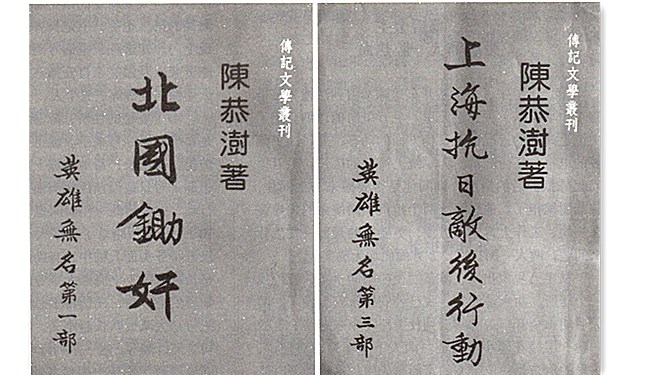 傳記文學叢刊
陳恭澍著
北國鋤奸
英雄無名第一部
傳記文學叢刊
陳恭澍著
上海抗日敵後行動
英雄無名第三部